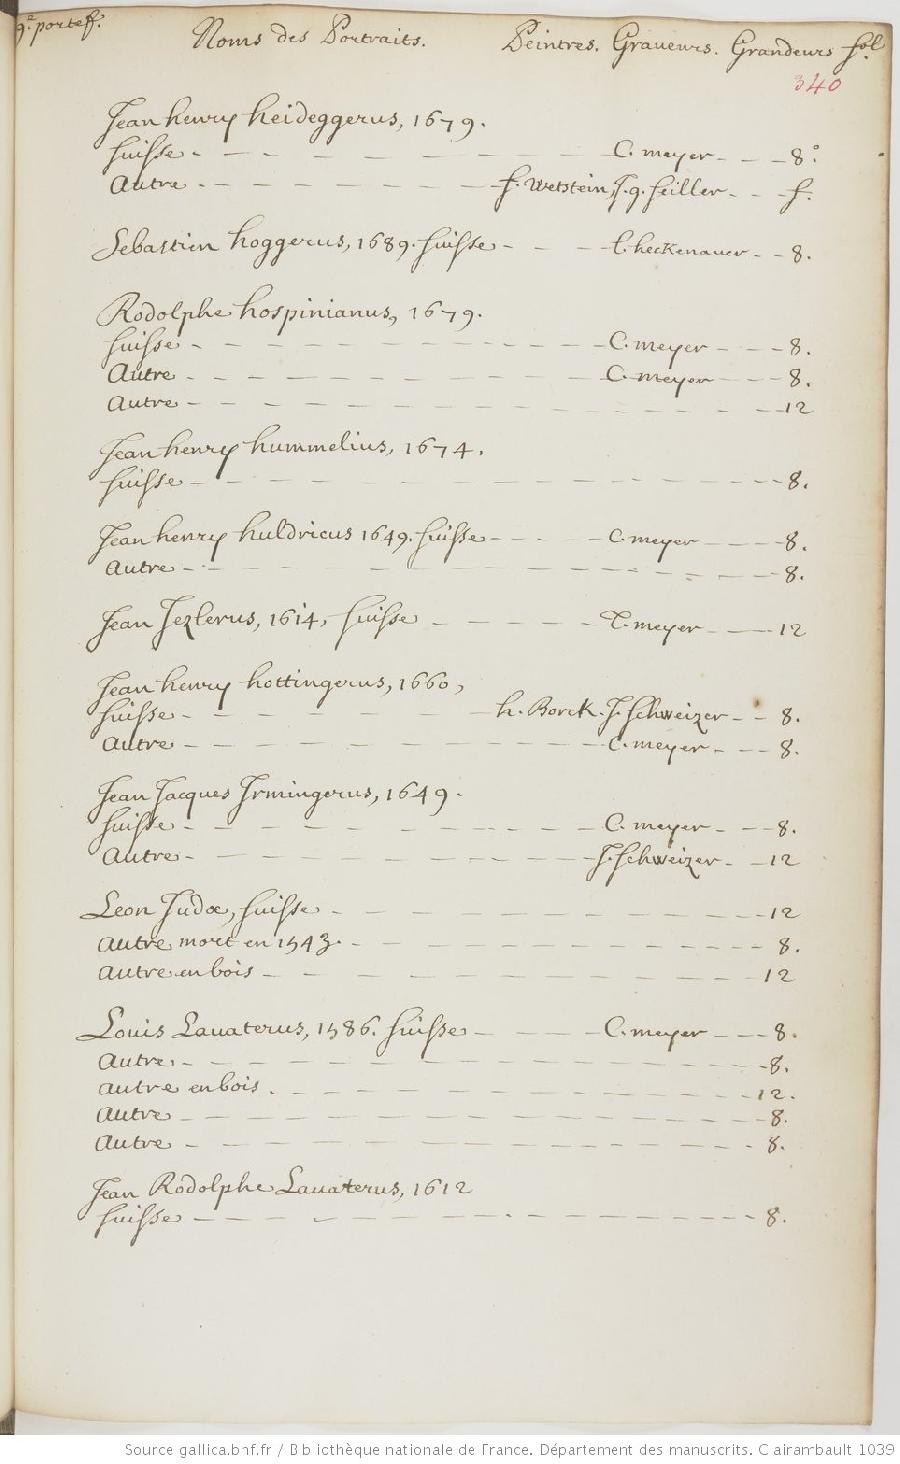 9.e portef. Noms des Portraits. Peintres. Graveurs. Grandeurs fol.
340
Jean henry heideggerus, 1679.
Suisse - - - - - C. meyer - - - 8.°
Autre - - - - - f. Wetstein, J. g. Seiller - - - f.
Sebastien hoggerus, 1689. Suisse - - - l. heckenauer - - 8.
Rodolphe hospinianus, 1679.
Suisse - - - - - C. meyer - - - 8.
Autre - - - - - C. meyer - - - 8.
Autre - - - - - 12
Jean henry hummelius, 1674.
Suisse - - - - - 8.
Jean henry huldricus 1649. Suisse - - - C. meyer - - - 8.
Autre - - - - - 8.
Jean Jezlerus, 1614, Suisse - - - C. meyer - - 12
Jean henry hottingerus, 1660,
Suisse - - - - - h. Borck. J. Schweizer - - 8.
Autre - - - - - C. meyer - - - 8.
Jean Jacques Irmingerus, 1649.
Suisse - - - - - C. meyer - - - 8.
Autre - - - - - J. Schweizer - - 12
Leon Judæ, Suisse - - - - - 12
Autre mort en 1543. - - - - - 8.
Autre en bois - - - - - 12
Louis Lauaterus, 1586. Suisse - - - C. meyer - - - 8.
Autre - - - - - 8.
autre en bois - - - - - 12.
Autre - - - - - 8.
Autre - - - - - 8.
Jean Rodolphe Lauaterus, 1612
Suisse - - - - - 8.
Source gallica.bnf.fr / Bibliothèque nationale de France. Département des manuscrits. Clairambault 1039